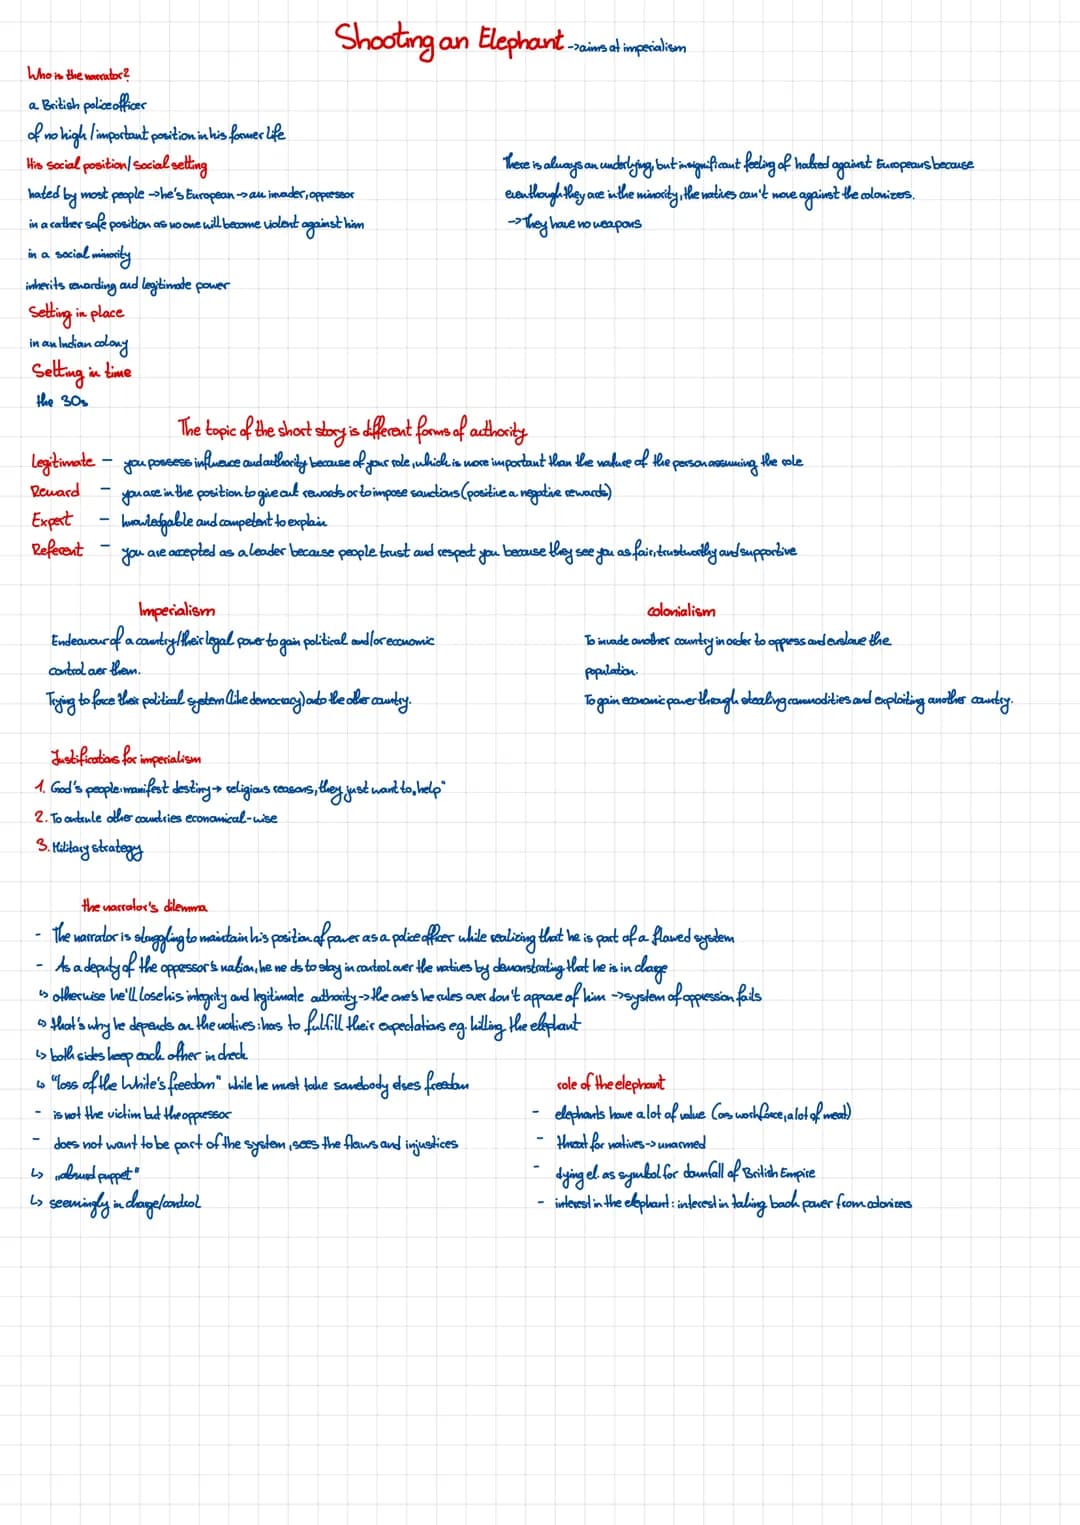 Shooting an Elephant ->aims at imperialism
Who is the narrator?
a British police officer
of no high / important position in his former life
His social position/ Social setting
hated by most people ->he's European -> an invader, oppressor
in a rather safe position as no one will become violent against him
in a social minority
inherits rewarding and legitimate power
There is always an underlying, but insignificant feeling of hatred against Europeans because
eventhough they are in the minority, the natives can't move against the colonizers.
-> They have no weapons
Setting in place
in an Indian colony
Setting in time
the 30s
The topic of the short story is different forms of authority
Legitimate - you possess influence and authority because of your role, which is more important than the nature of the person assuming the role
Reward - you are in the position to give out rewards or to impose sanctions (positive a. negative rewards)
Expert - knowledgable and competent to explain
Referent - you are accepted as a leader because people trust and respect you because they see you as fair, trustworthy and supportive
Imperialism
Endeavour of a country/their legal power to gain political and/or economic
control over them.
Trying to force their political system (like democracy) onto the other country.
colonialism
To invade another country in order to oppress and enslave the
population.
To gain economic power through stealing commodities and exploiting another country.
Justifications for imperialism
1. God's people: manifest destiny -> religious reasons, they just want to „help"
2. To outrule other countries economical-wise
3. Military strategy
the narrator's dilemma
- The narrator is struggling to maintain his position of power as a police officer while realizing that he is part of a flawed system
- As a deputy of the oppressor's nation, he ne ds to stay in control over the natives by demonstrating that he is in charge
↳ otherwise he'll lose his integrity and legitimate authority -> the one's he rules over don't approve of him -> system of oppression fails
↳ that's why he depends on the natives: has to fulfill their expectations eg. killing the elephant
↳ both sides keep each other in check
↳ "loss of the White's freedom" while he must take somebody elses freedom
- is not the victim but the oppressor
- does not want to be part of the system, sees the flaws and injustices
↳ „absurd puppet"
↳ seemingly in charge/control
role of the elephant
- elephants have a lot of value (as workforce, a lot of meat)
- threat for natives -> unarmed
- dying el. as symbol for downfall of British Empire
- interest in the elephant: interest in taking back power from colonizers